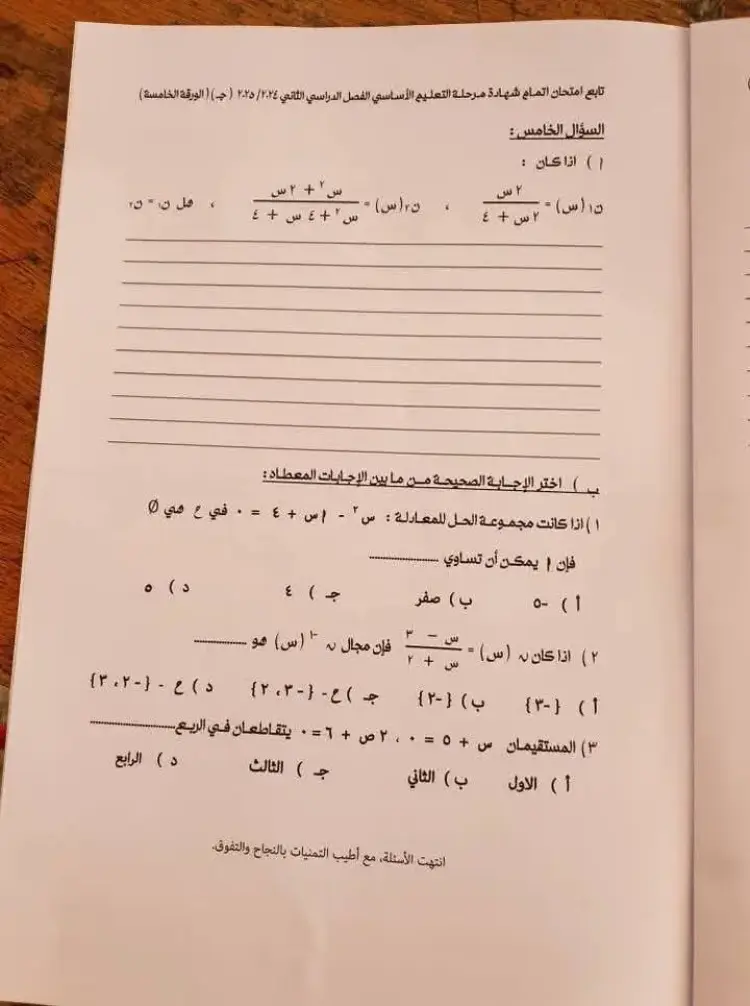 تابع امتحان اتمام شهادة مرحلة التعليم الأساسي الفصل الدراسي الثاني ٢٠٢٤/ ٢٠٢٥ ( جـ ) ( الورقة الخامسة )
السؤال الخامس :
أ ) اذا كان :
ن١ (س) = ٢ س / ٢ س + ٤ ، ن٢ (س) = س٢ + ٢ س / س٢ + ٤ س + ٤ ، هل ن١ = ن٢
ب ) اختر الإجابة الصحيحة من ما بين الإجابات المعطاد :
١ ) اذا كانت مجموعة الحل للمعادلة : س٢ - أ س + ٤ = ٠ في ح هي Ø
فإن أ يمكن أن تساوي ..................
أ ) -٥ ب ) صفر جـ ) ٤ د ) ٥
٢ ) اذا كان ن (س) = س - ٣ / س + ٢ فإن مجال ن-١ (س) هو ..............
أ ) { -٣ } ب ) { -٢ } جـ ) ح - { -٣ ، ٢ } د ) ح - { -٢ ، ٣ }
٣ ) المستقيمان س + ٥ = ٠ ، ٢ ص + ٦ = ٠ يتقاطعان في الربع......................
أ ) الاول ب ) الثاني جـ ) الثالث د ) الرابع
انتهت الأسئلة، مع أطيب التمنيات بالنجاح والتفوق.